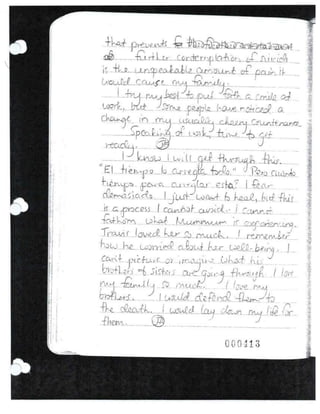 that prevents
further contemplation of suicide
is the unspeakable amount of pain it
would cause my family.
I try my best to put forth a smile at
work, but some people have noticed a
change in my usually cheery countenance.
Speaking of work, time to get
ready.
I know I will get through this.
"El tiempo lo arregla todo." Pero cuanto
tiempo para arreglar esta? I fear
demasiado. I just want to heal, but this
is a process I cannot avoid. I cannot
fathom what Mummum is experiencing.
Travis loved her so much. I remember
how he worried about her well-being. I
can't picture or imagine what his
brothers & sisters are going through. I love
my family so much. I love my
brothers. I would defend them to
the death. I would lay down my life for
them.
000413